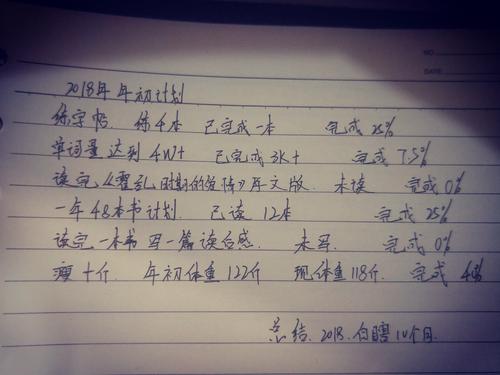 NO.
DATE
2018年 年初计划
练字帖 练4本 已完成一本 完成 25%
单词量达到4W+ 已完成3K+ 完成 7.5%
读完《霍乱时期的爱情》原文版. 未读 完成 0%
一年48本书计划. 已读 12本 完成 25%
读完一本书 写一篇读后感. 未写. 完成 0%
瘦十斤. 年初体重122斤 现体重118斤. 完成 4%
总结. 2018. 白瞎10个月.